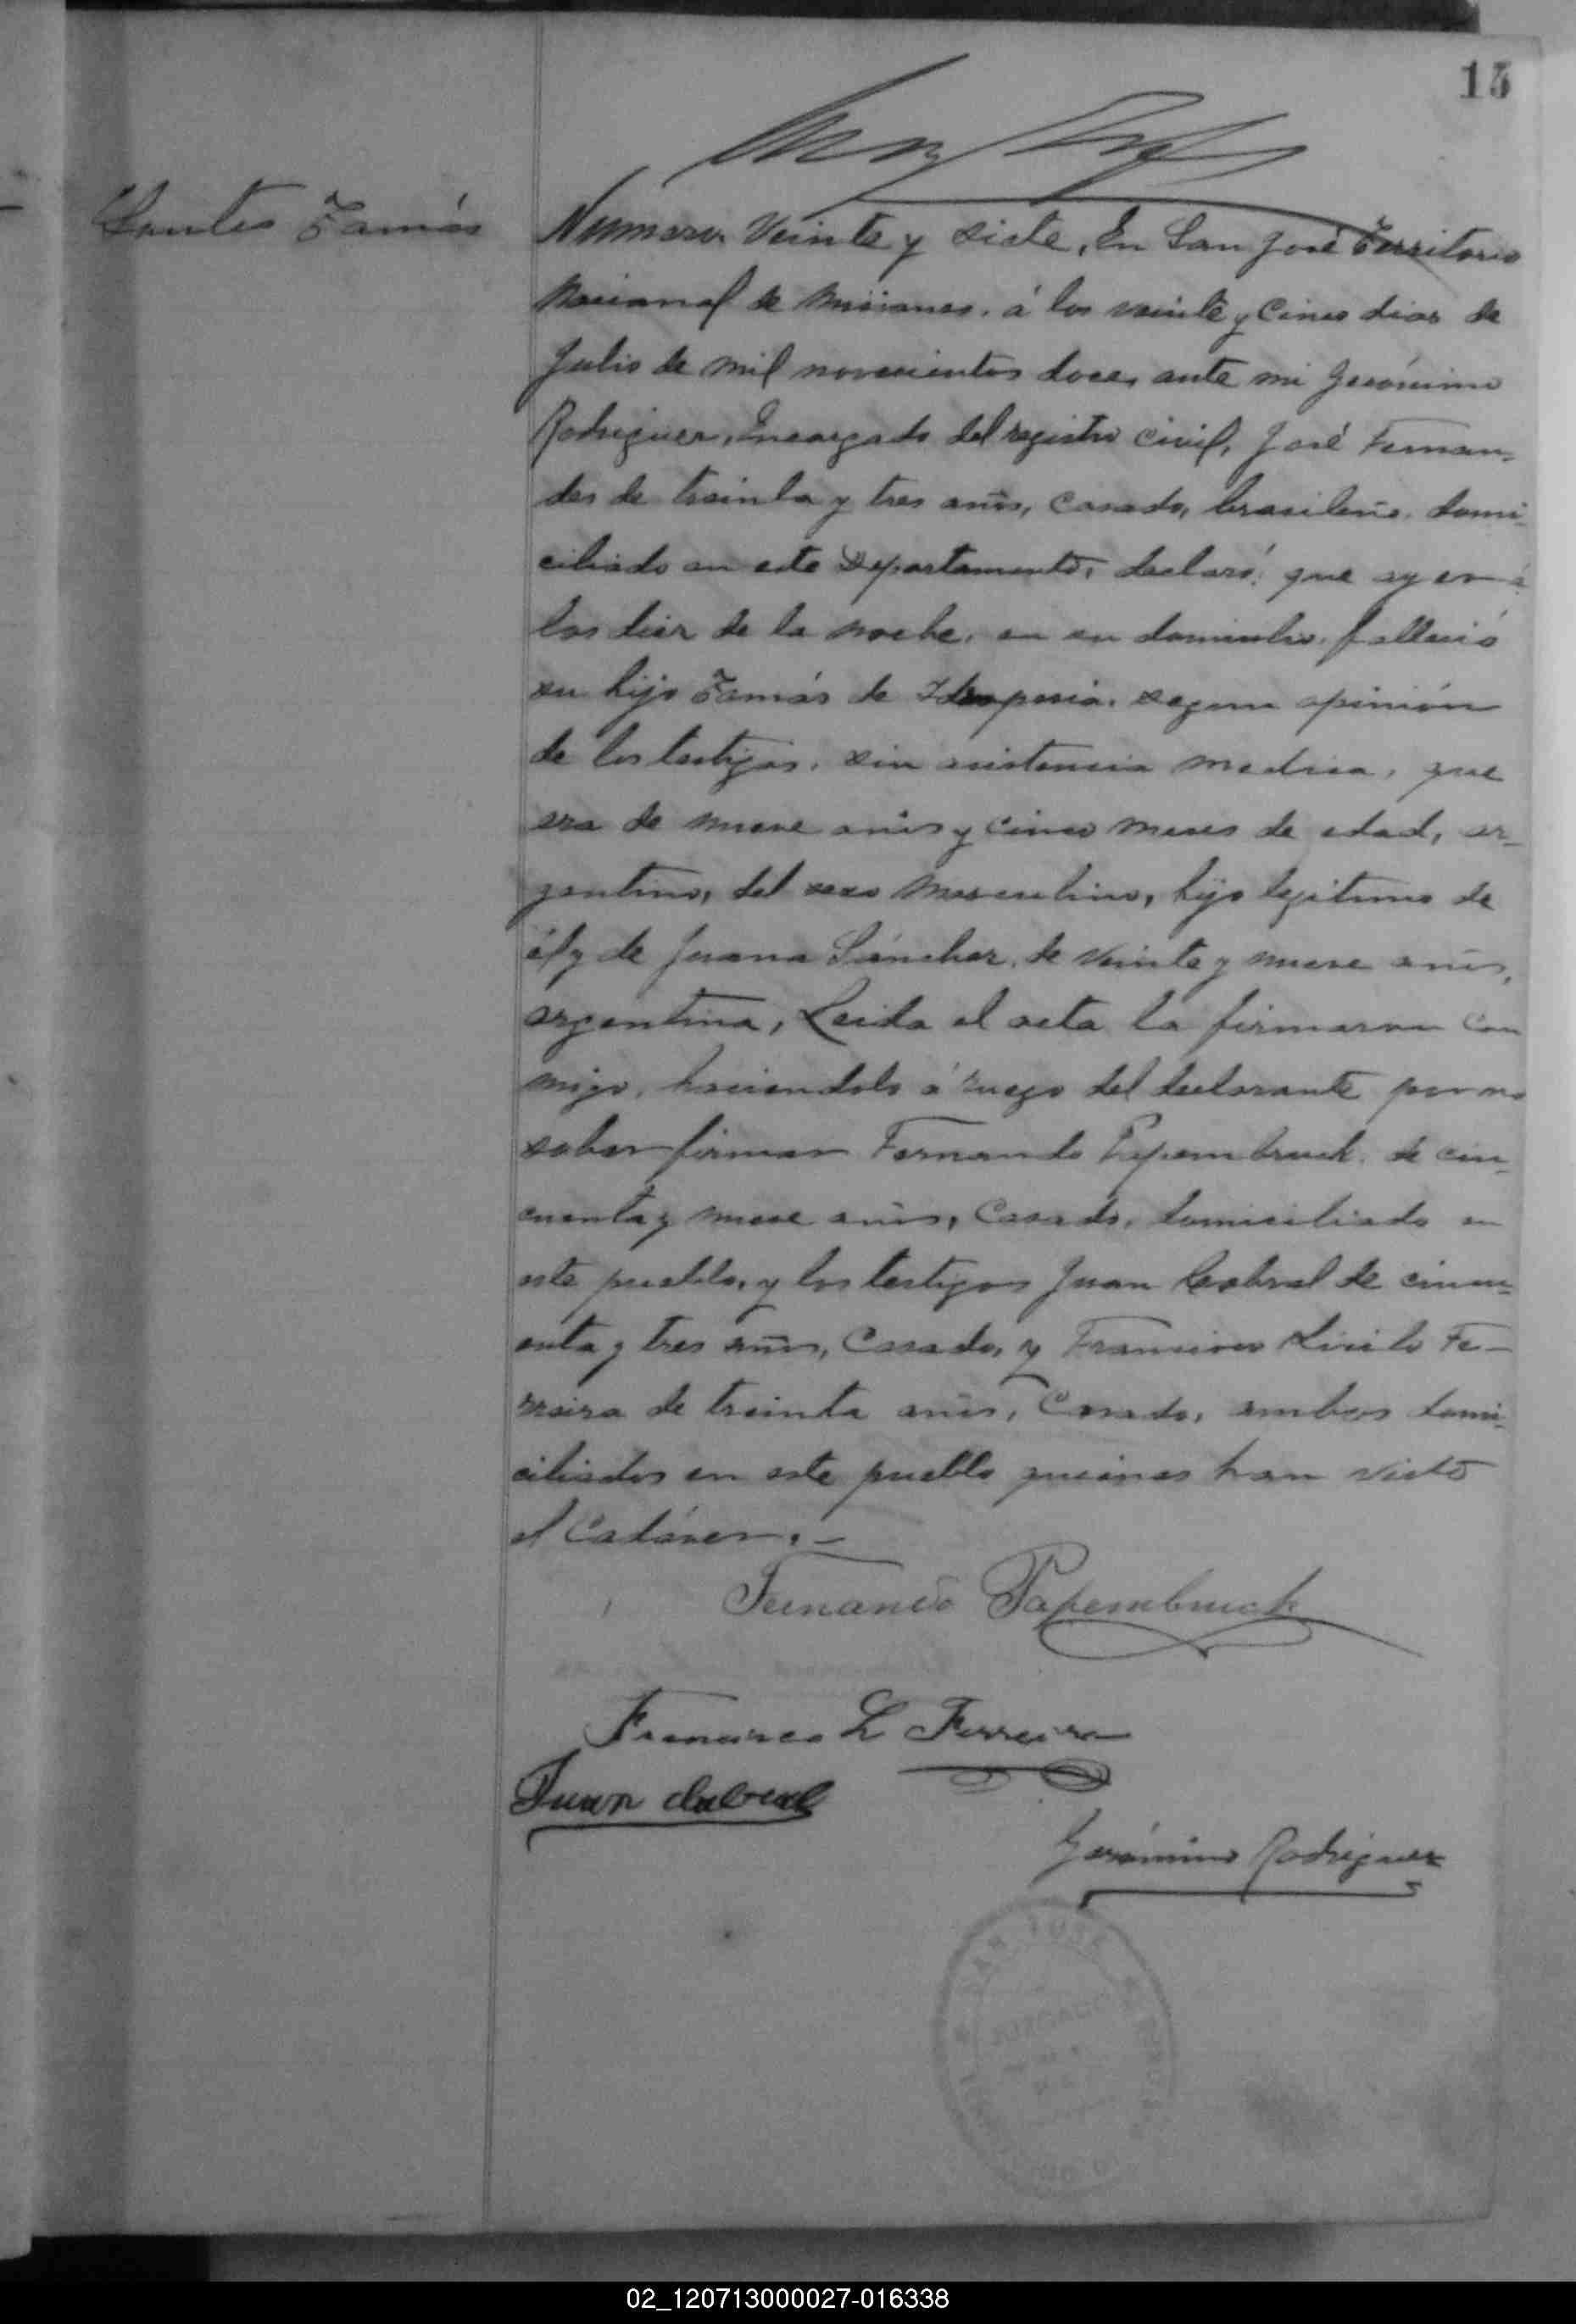 15
Santos Tomás
Numero Veinte y siete, En San José Territorio
Nacional de Misiones, á los veinte y cinco dias de
Julio de mil novecientos doce, ante mi Jerónimo
Rodriguez, Encargado del registro civil, José Fernan-
des de treinta y tres años, casado, brasileño, domi-
ciliado en este Departamento, declaró: que ayer á
las diez de la noche, en su domicilio, falleció
su hijo Tomás de Idropesia, segun opinión
de los testigos, sin asistencia medica, que
era de nueve años y cinco meses de edad, ar-
gentino, del sexo masculino, hijo legitimo de
él y de Juana Sánchez, de veinte y nueve años,
argentina, Leida el acta la firmaron con
migo, haciendolo á ruego del declarante por no
saber firmar Fernando Papembruck, de cin-
cuenta y nueve años, casado, domiciliado en
este pueblo, y los testigos Juan Cabral de cincu-
enta y tres años, Casado, y Francisco Lirilo Fe-
rreira de treinta años, Casado, ambos domi-
ciliados en este pueblo quienes han visto
el Cadáver.-
Fernando Papembruck
Francisco L Ferreira
Juan Cabral
Gerónimo Rodriguez
SAN JOSE
JUZGADO
02_120713000027-016338